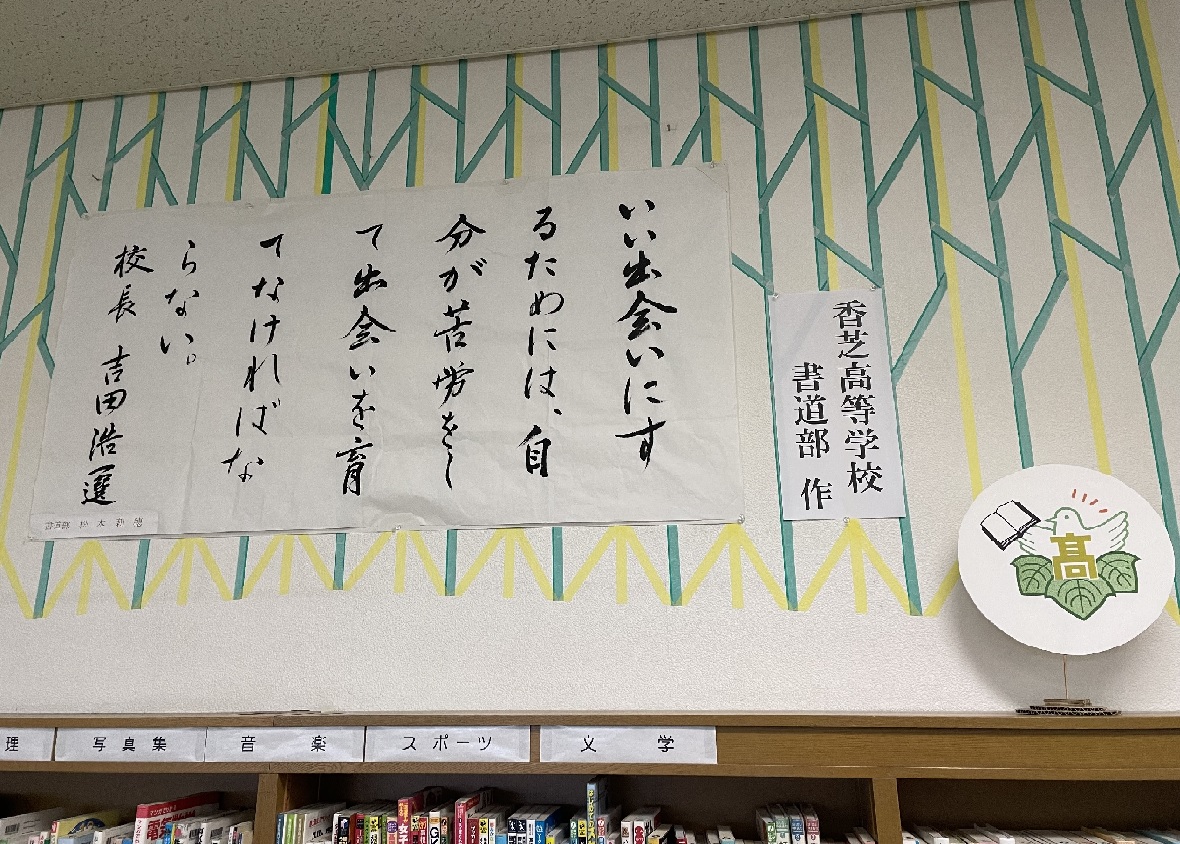 いい出会いにす
るためには、自
分が苦労をし
て出会いを育
てなければな
らない。
校長 吉田浩選
香芝高等学校
書道部 作
高
理
写真集
音楽
スポーツ
文学